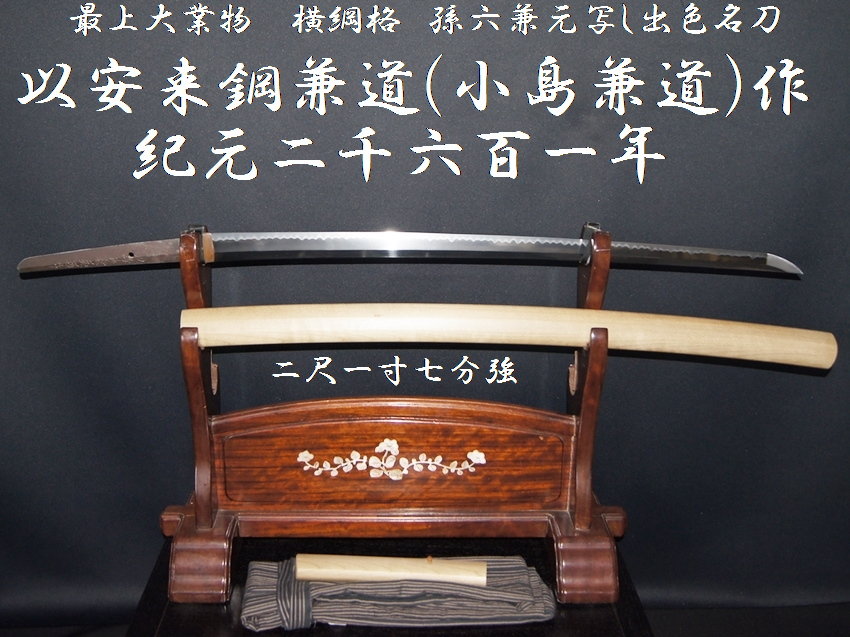 最上大業物　横綱格　孫六兼元写し出色名刀
以安来鋼兼道(小島兼道)作
紀元二千六百一年
二尺一寸七分強